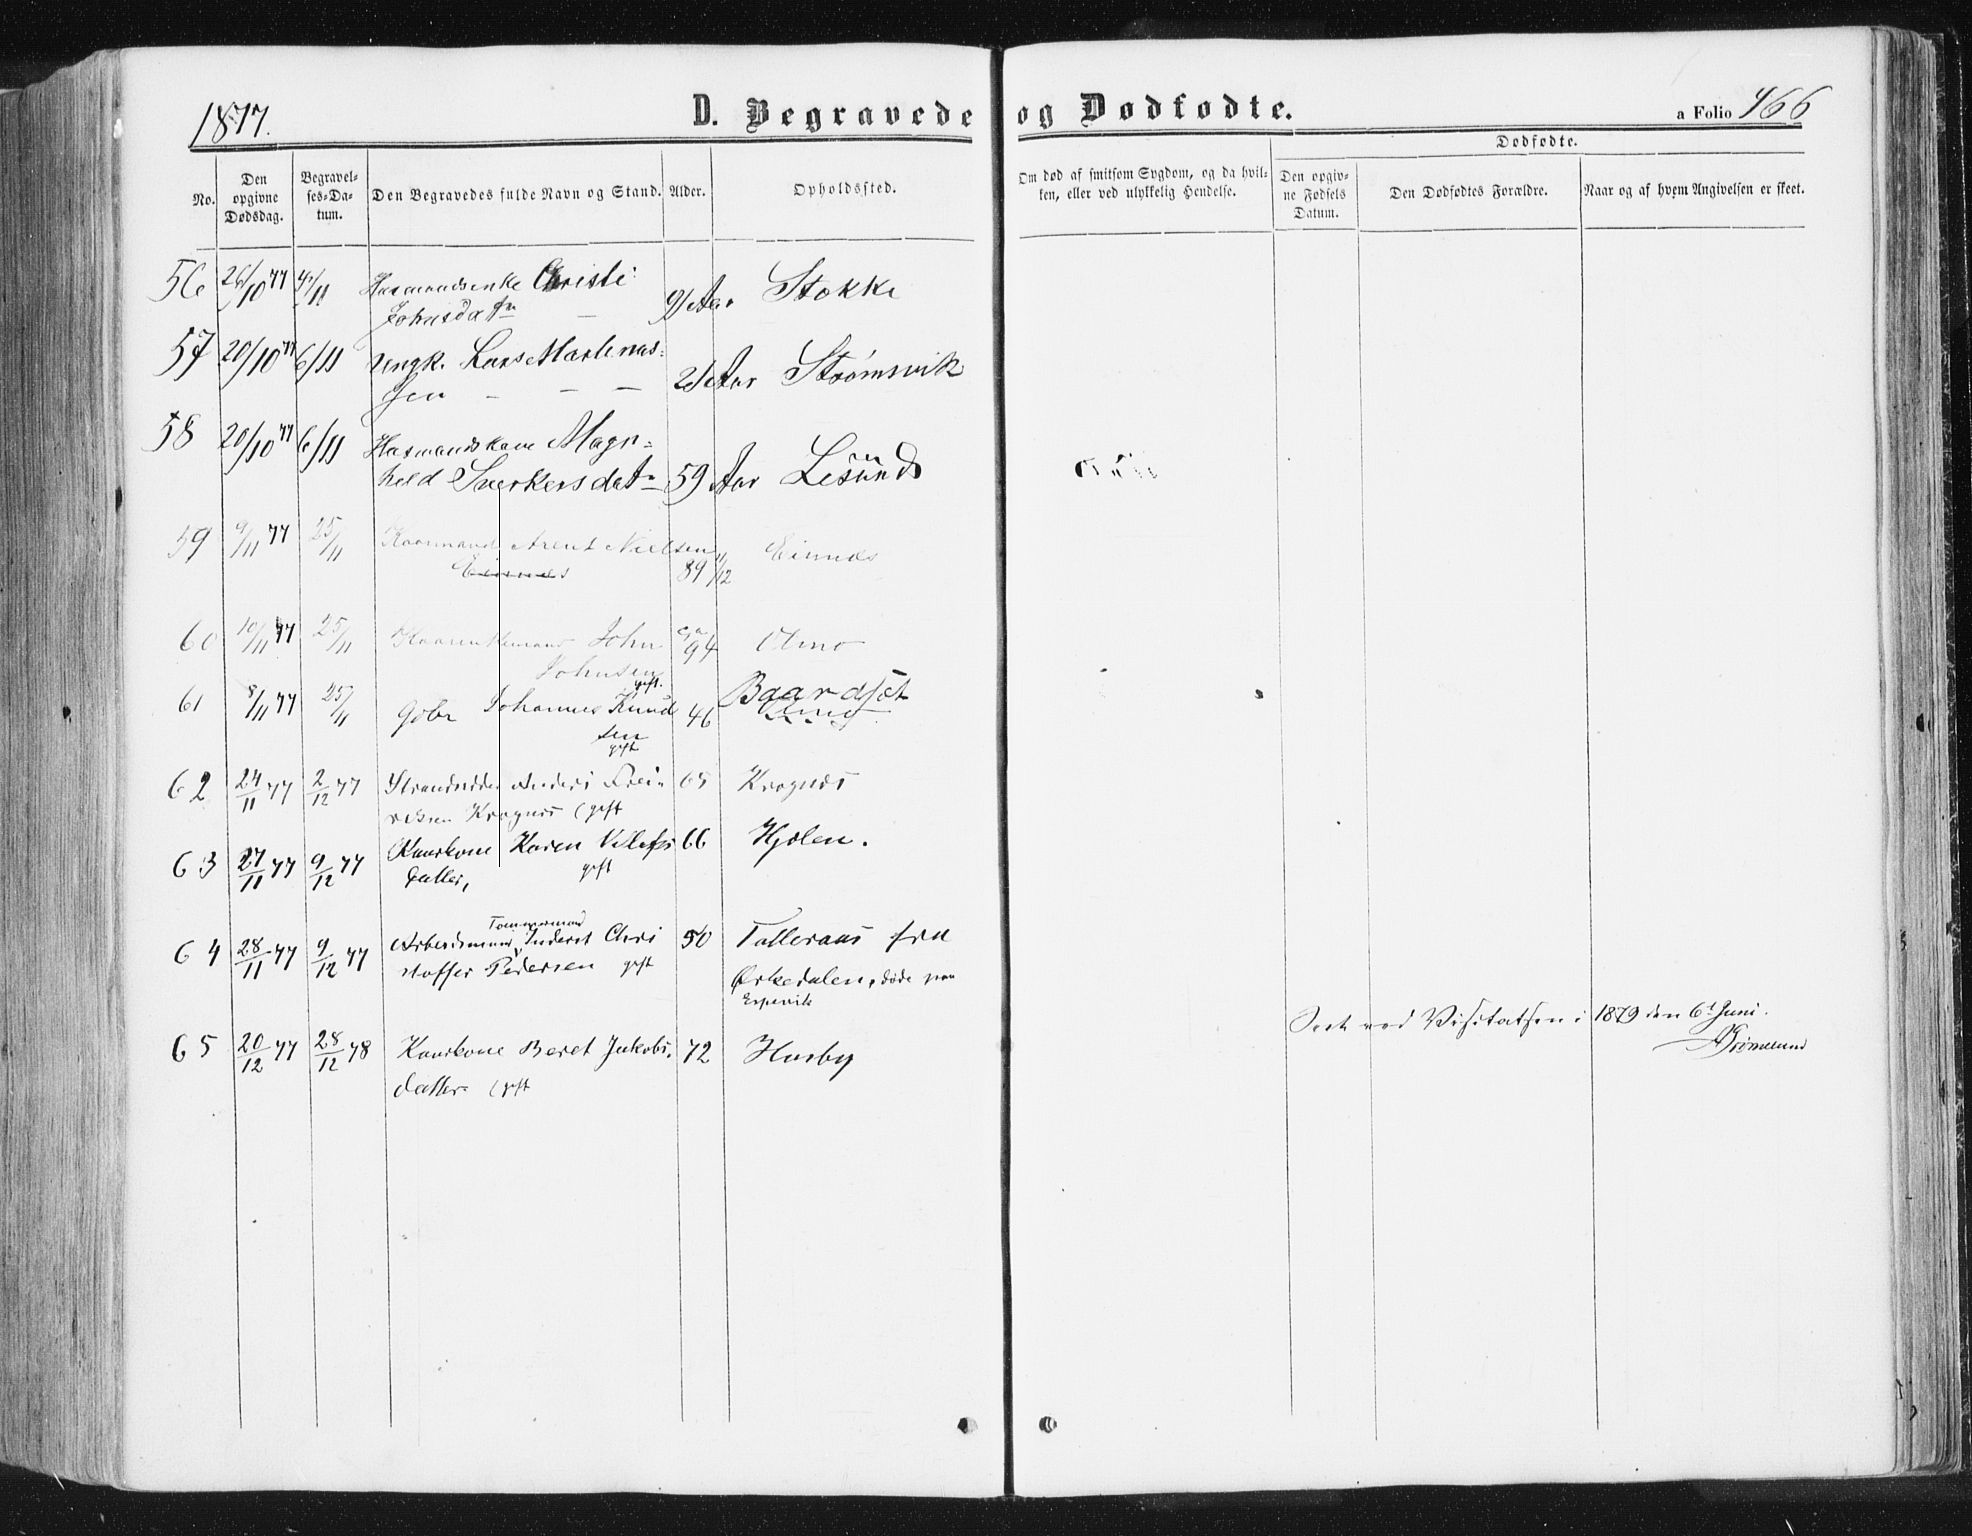 1877.
D. Begravede og Dødfødte.
a Folio 466
No.
Den opgivne Dødsdag.
Begravelses-Datum.
Den Begravedes fulde Navn og Stand.
Alder.
Opholdssted.
Om død af smitsom Sygdom, og da hvilken, eller ved ulykkelig Hendelse.
Dødfødte.
Den opgivne Fødsels Datum.
Den Dødfødtes Forældre.
Naar og af hvem Angivelsen er skeet.
56 26/10 77 4/11 Christi
Johnsdatr — 91 Aar Stokke
57 20/10 77 6/11 Ungk. Lars Martinus=
sen — — — 21 Aar Strømsvik
58 20/10 77 6/11 Husmandskone Magn=
hild Sverkersdatr 59 Aar Lesund
59 9/11 77 25/11 Kaarmand Arent Nielsen
Eisnes 89 11/12
60 10/11 77 25/11 John
Johnsen 94 Olmo
61 8/11 77 25/11 Gbbr Johannes Knud
sen gift 46 Baardset
62 24/11 77 2/12 77 Strandsidder Anders
Kragnes (gift 65 Kragnes
63 27/11 77 9/12 77 Kaarkone Karen
datter, gift 66 Hjølen.
64 28/11 77 9/12 77 Arbeidsmand Tømmermand Chri
stoffer Pedersen gift 50 fra
Ørkedalen, døde paa
Espevik
65 20/12 77 28/12 78 Kaarkone Beret Jakobs.
datter (gift 72 Husby
Seet ved Visitatsen i 1879 den 6t Juni.